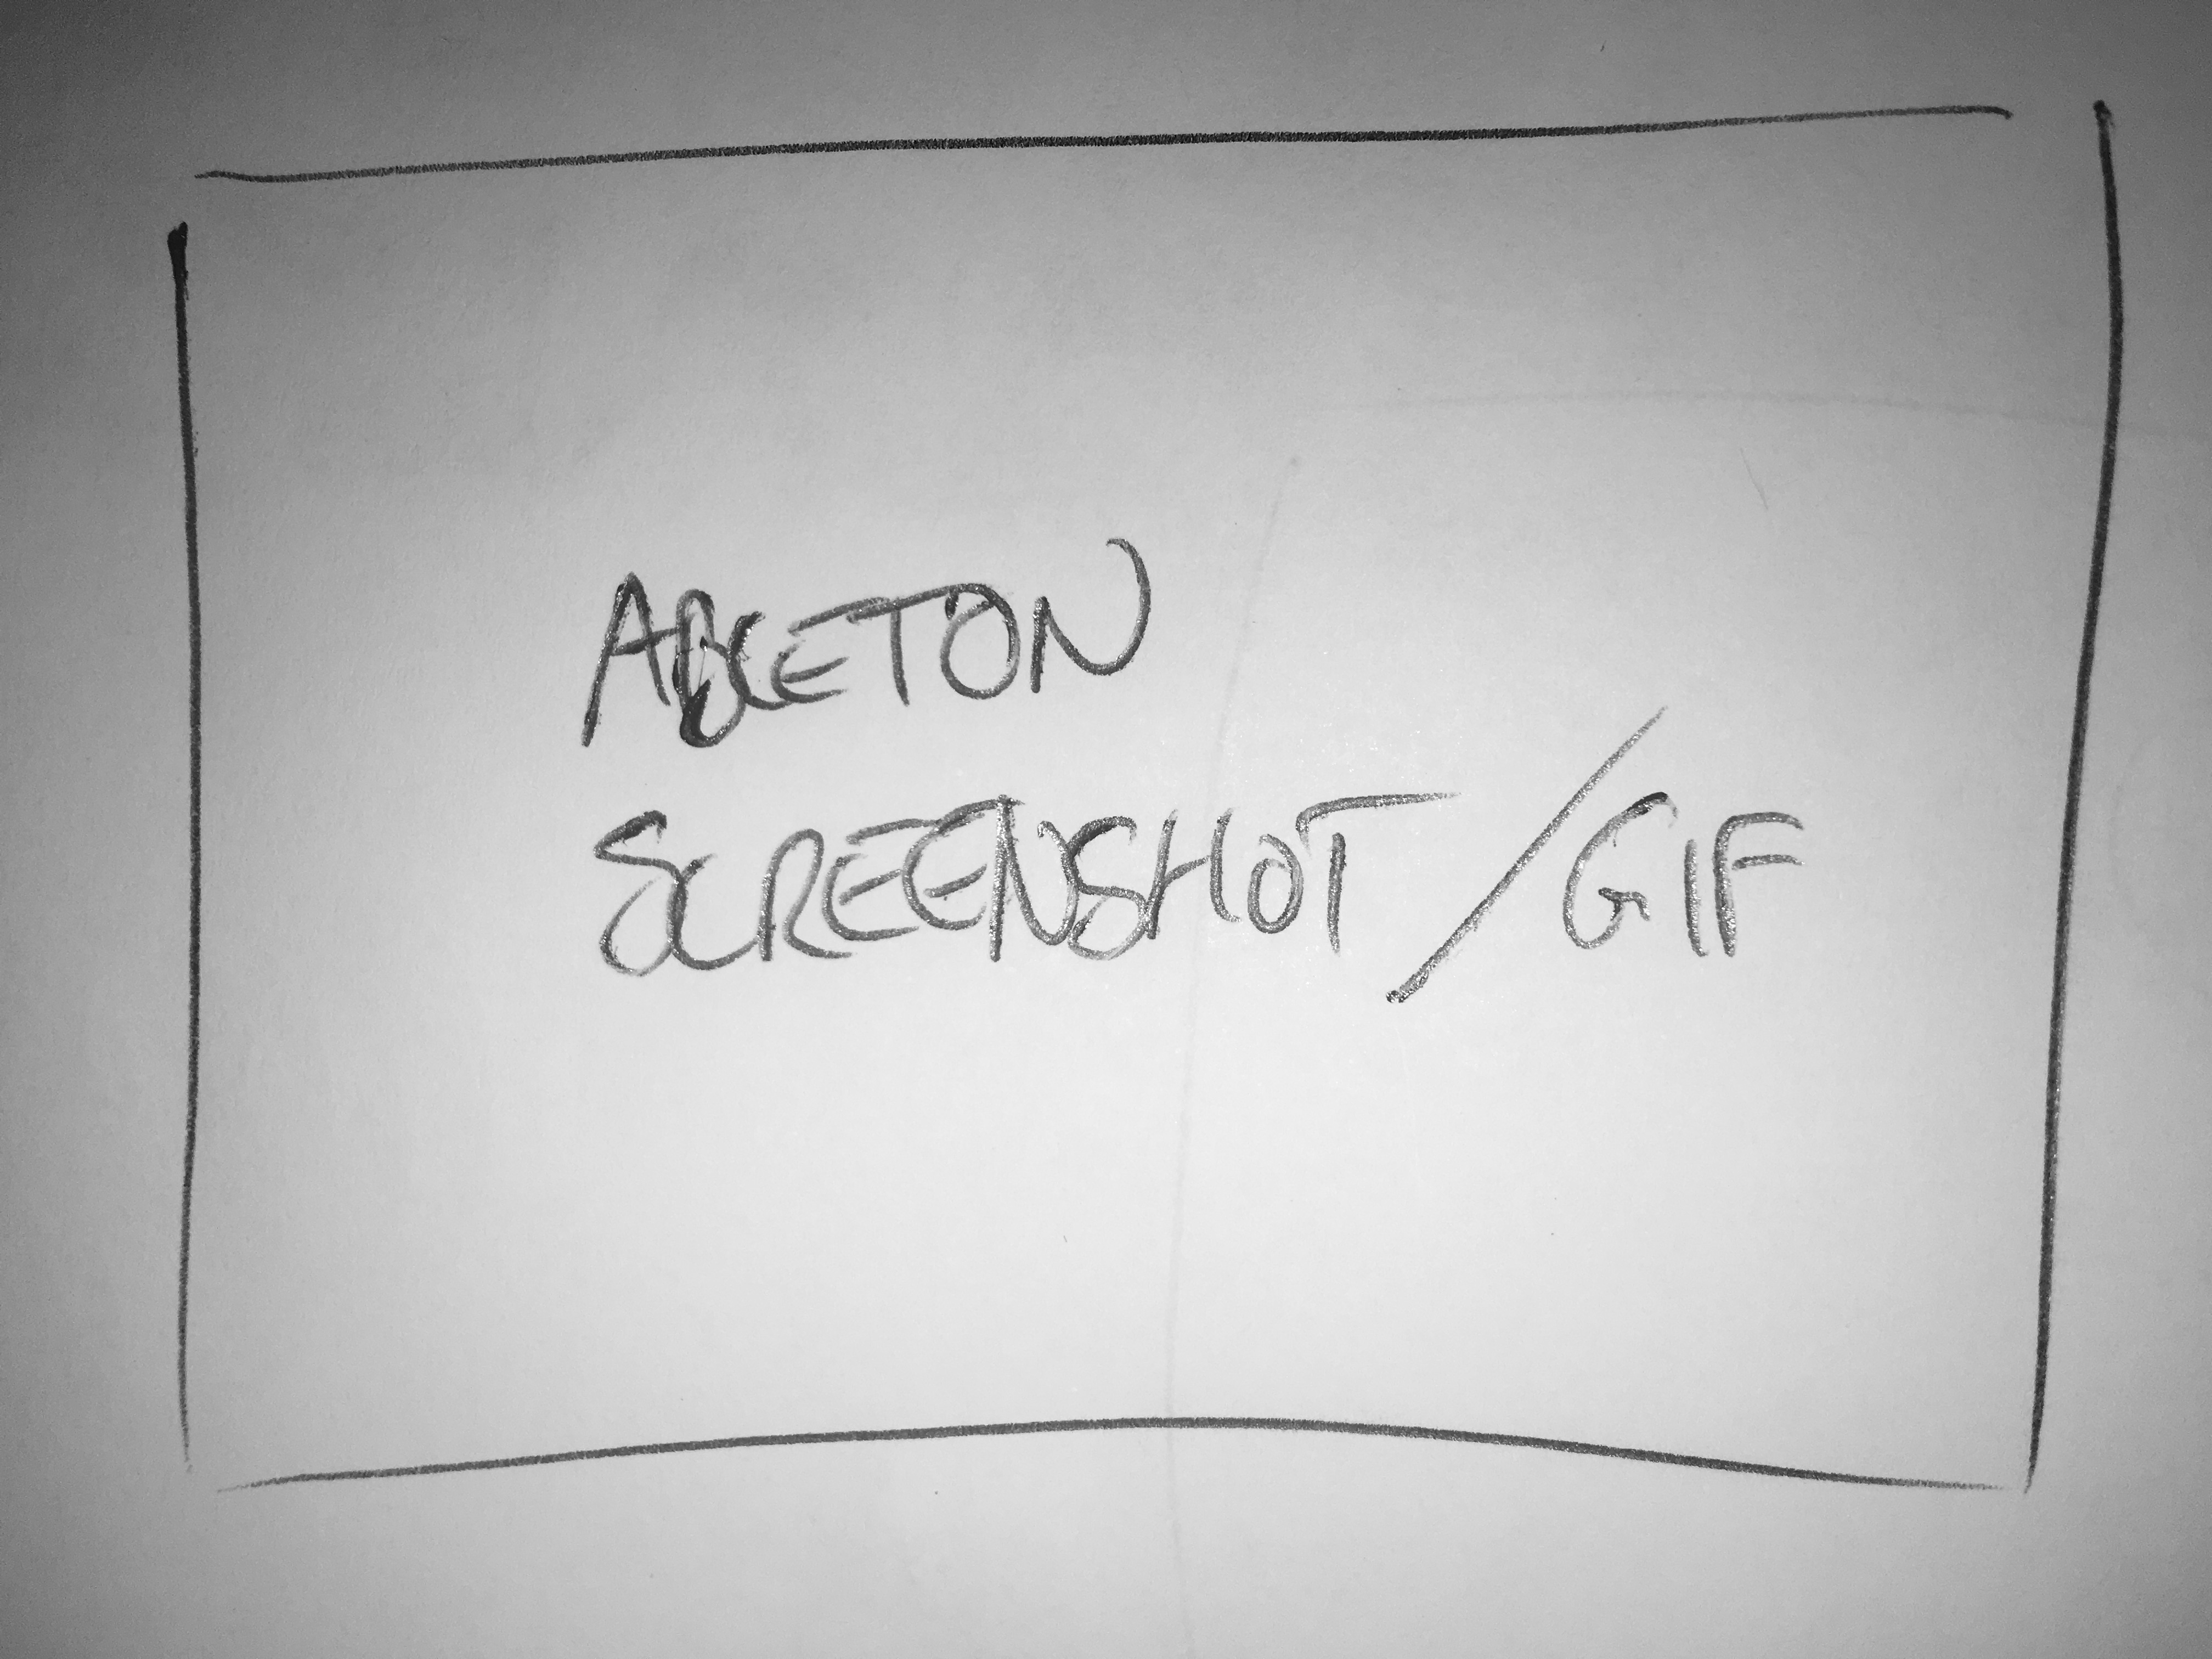 ABLETON
SCREENSHOT/GIF